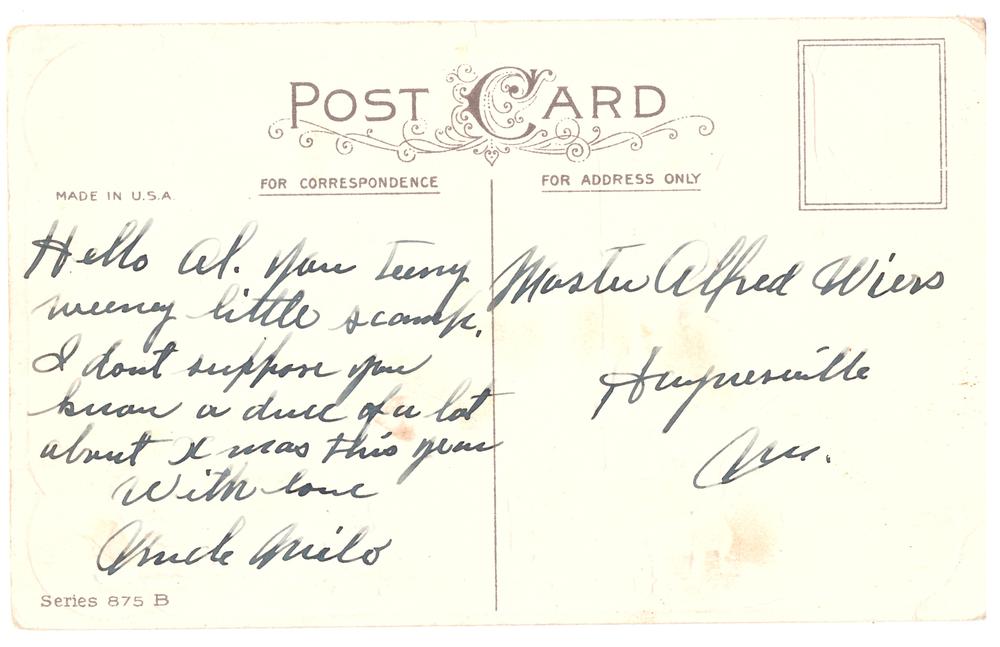 POST CARD
FOR CORRESPONDENCE
FOR ADDRESS ONLY
MADE IN U.S.A.
Hello Al. You teeny
weeney little scamp.
I dont suppose you
know a duce of a lot
about Xmas this year
With love
Uncle Milo
Series 875 B
Master Alfred Wiers
Haynesville
Me.